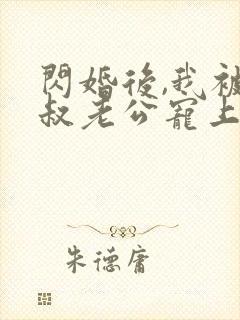 閃婚後,我被
叔老公寵上
朱德庸